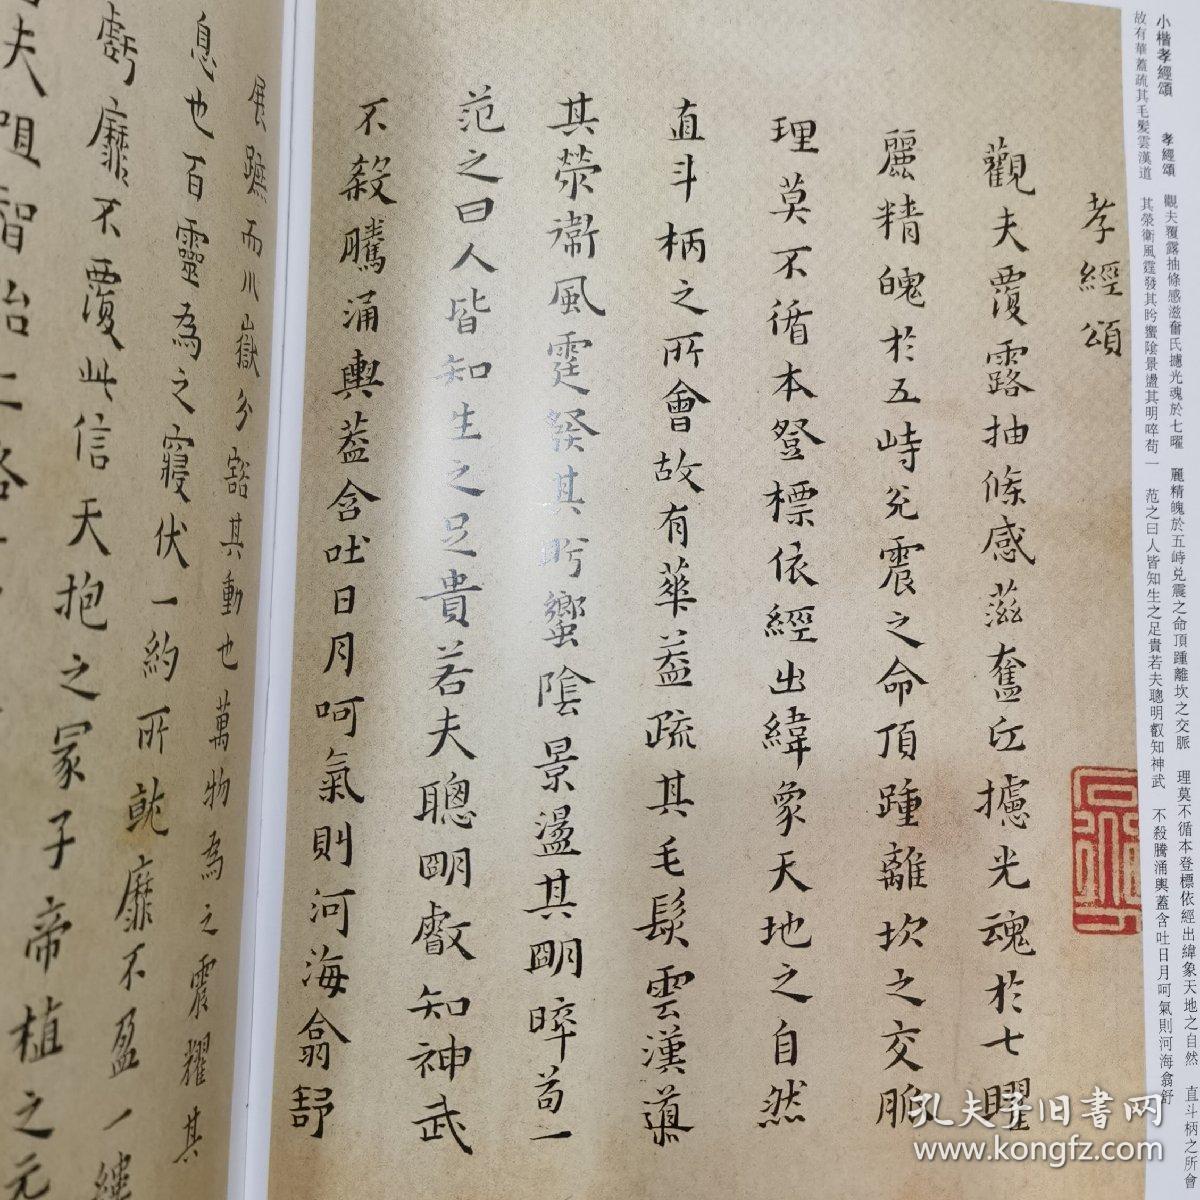 小楷孝經頌　孝經頌　觀夫覆露抽條感滋奮氏攄光魂於七曜　麗精魄於五峙兑震之命頂踵離坎之交脈　理莫不循本登標依經出緯象天地之自然　直斗柄之所會
故有華蓋疏其毛髮雲漢道　其滎衛風霆發其肸蠁陰景盪其明啐苟一　范之曰人皆知生之足貴若夫聰明叡知神武　不殺騰涌輿蓋含吐日月呵氣則河海翕舒
孝經頌
觀夫覆露抽條感滋奮氐攄光魂於七曜
麗精魄於五峙兑震之命頂踵離坎之交脈
理莫不循本登標依經出緯象天地之自然
直斗柄之所會故有華蓋疏其毛髮雲漢導
其滎衛風霆發其肸蠁陰景盪其明晬苟一
范之曰人皆知生之足貴若夫聰明叡知神武
不殺騰涌輿蓋含吐日月呵氣則河海翕舒
展蹠而川嶽分豁其動也萬物為之震耀其
息也百靈為之寢伏一約所就靡不盈一縷
虧靡不覆此信天抱之冢子帝植之元
夫咀智
孔夫子旧书网
www.kongfz.com